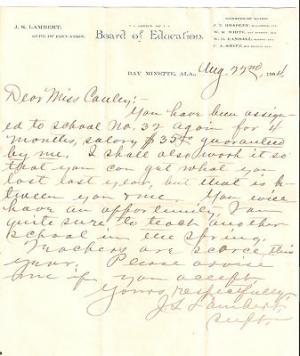 J. S. LAMBERT,
SUPT. OF EDUCATION.
OFFICE OF
Board of Education.
MEMBERS OF BOARD
J. T. BRADLEY,
W. R. WHITE,
W. G. RANDALL,
BAY MINETTE, ALA., Aug 22nd, 190
Dear Miss Cauley:-
You have been assign-
ed to school No. 32 again for 4
months, salary $35 guaranteed
by me. I shall also work it so
that you can get what you
lost last year, but that is be-
tween you & me. You will
have an opportunity, I am
quite sure, to teach another
school in the Spring.
Teachers are scarce this
year. Please advise
me if you accept.
Yours respectfully,
J S Lambert,
Supt.